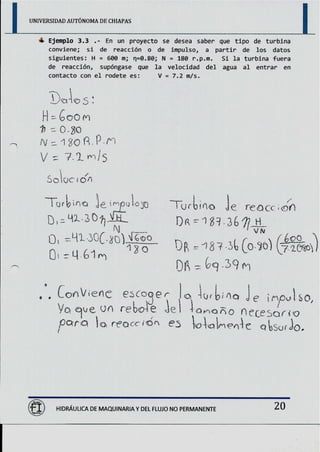 UNIVERSIDAD AUTÓNOMA DE CHIAPAS
Ejemplo 3.3 .- En un proyecto se desea saber que tipo de turbina
conviene; si de reacción o de impulso, a partir de los datos
siguientes: H = 600 m; η=0.80; N = 180 r.p.m. Si la turbina fuera
de reacción, supóngase que la velocidad del agua al entrar en
contacto con el rodete es: V = 7.2 m/s.
Datos:
H = 600 m
η = 0.80
N = 180 R.P.M
V = 7.2 m/s
Solución
Turbina de impulso
D₁ = 42.30 η √H / N
D₁ = 42.30(.80) √600 / 180
D₁ = 4.61m
Turbina de reacción
DR = 187.36 η H / VN
DR = 187.36 (0.80) (600 / 7.2(180))
DR = 69.39m
∴ Conviene escoger la turbina de impulso,
Ya que un rebote del tamaño necesario
para la reacción es totalmente absurdo.
HIDRÁULICA DE MAQUINARIA Y DEL FLUJO NO PERMANENTE 20